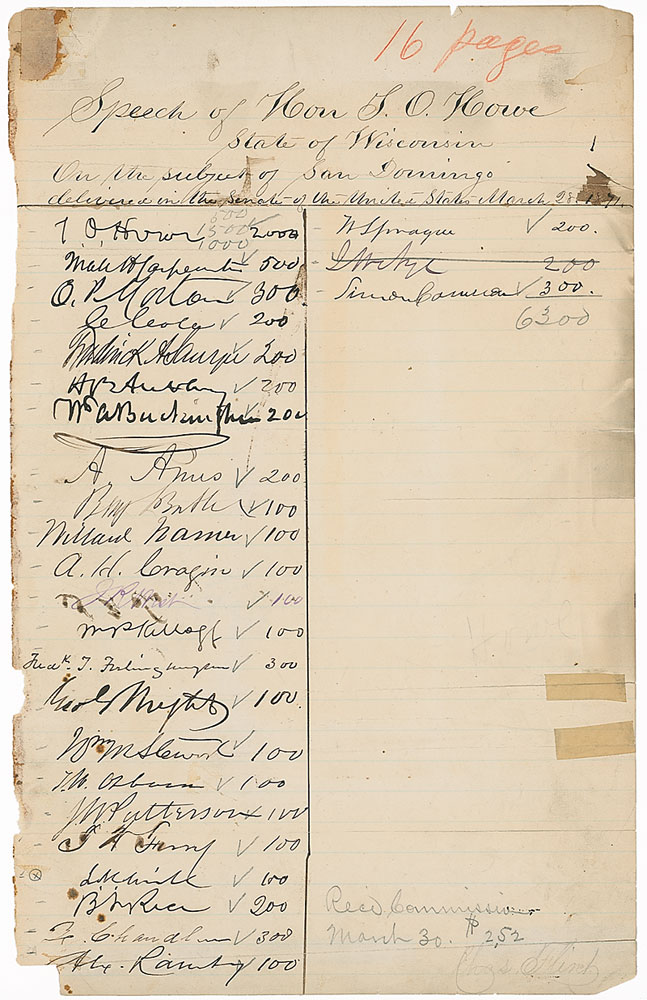 16 pages
Speech of Hon T. O. Howe
State of Wisconsin
On the subject of San Domingo
delivered in the Senate of the United States March 28 1871
500
1500
1000
T O Howe 2000
Matt H Carpenter ✓ 500
O. P. Morton ✓ 300
C Cole ✓ 200
Frederick A Sawyer ✓ 200
H B Anthony ✓ 200
Wm A Buckingham 200
A Ames ✓ 200
Benj Butler ✓ 100
Willard Warner ✓ 100
A. H. Cragin ✓ 100
✓ 100
Wm P Kellogg ✓ 100
Fredk. T. Frelinghuysen ✓ 300
Geo G Wright ✓ 100.
Wm M Stewart ✓ 100
T. W. Osborn ✓ 100
J W Patterson × 100
T W Ferry ✓ 100
✓ 100
B F Rice ✓ 200
Z. Chandler ✓ 300
Alex. Ramsey ✓ 100
W Sprague ✓ 200.
200
Simon Cameron ✓ 300.
6300
Recd. Commission
March 30. $2.52